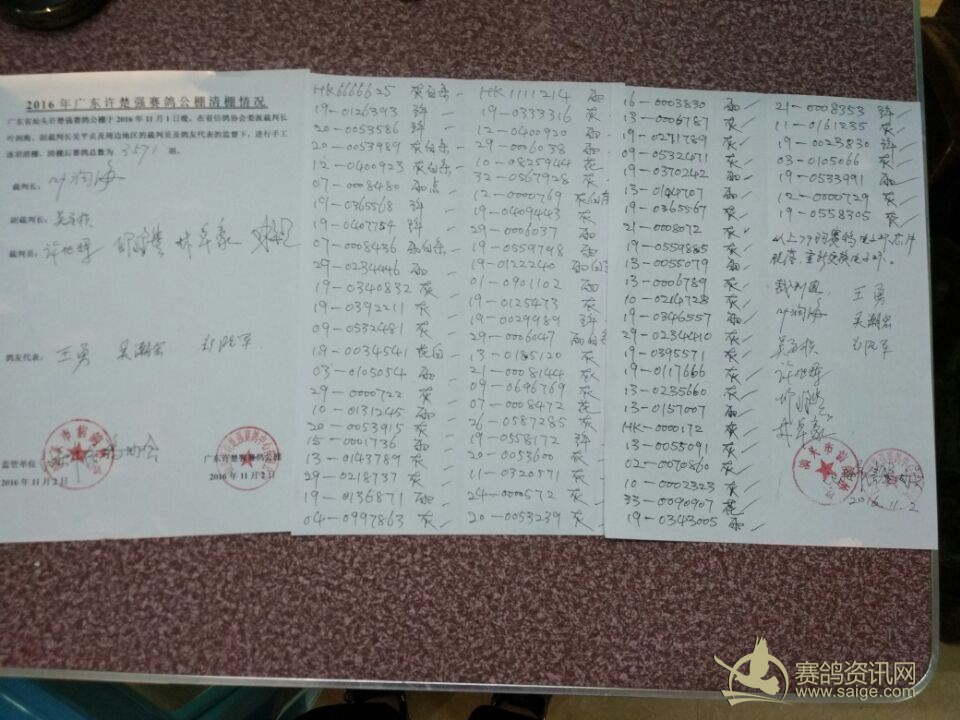 2016年广东许楚强赛鸽公棚清棚情况
广东省汕头许楚强赛鸽公棚于2016年11月1日晚，在省信鸽协会委派裁判长
叶润海、副裁判长吴平贞及周边地区的裁判员及鸽友代表的监督下，进行手工
逐羽清棚。清棚后赛鸽总数为 3571 羽。
裁判长：叶润海
副裁判长：
裁判员：
鸽友代表：王勇 吴潮宏
监管单位
2016年11月2日
广东许楚强赛鸽公棚
2016年11月2日
HK6666625 灰白条
19-0126393 绛
20-0053586 绛
20-0053989 灰白条
12-0400923 灰白条
07-0008480 雨点
19-0365568 绛
19-0407754 绛
07-0008436 雨白条
29-0234446 雨
19-0340832 灰
19-0392211 灰
09-0532481 灰
18-0034541 花白
03-0105054 雨
29-0000722 灰
10-0131245 雨
20-0053915 灰
15-0001736 雨
13-0143789 灰
29-0218737 灰
19-0136871 雨
04-0997863 灰
HK1111214 雨
19-0333316 灰
12-0400920 雨
29-0006038 雨
10-0825944 花
32-0567928 灰
12-0000769 灰白条
19-0409443 灰
29-0006037 雨
19-0559798 雨
19-0122240 雨白
01-0901102 雨
19-0125473 灰
19-0029989 绛
29-0006047 雨白
13-0185120 灰
21-0008144 灰
09-0696769 灰
07-0008472 花
26-0587285 灰
19-0558172 绛
20-0053600 灰
11-0320571 灰
24-0000572 灰
20-0053239 灰
16-0003830 雨
13-0006787 灰
19-0271789 灰
09-0532471 灰
19-0370242 雨
13-0144707 雨
19-0365567 灰
21-0008072 灰
19-0559885 灰
13-0055079 雨
13-0006789 灰
10-0214728 灰
19-0346557 雨
29-0234410 灰
19-0395571 灰
19-0117666 灰
13-0235660 灰
13-0157007 雨
HK-0000172 灰
13-0055091 灰
02-0070860 灰
10-0002323 灰
33-0090907 花
19-0343005 雨
21-0008353 绛
11-0161235 灰
19-0023830 绛
03-0105066 灰
19-0533991 雨
12-0000729 灰
19-0558305 灰
以上78羽赛鸽电子环芯片
脱落，重新更换电子环。
裁判团 王勇
叶润海 吴潮宏
2016.11.2
赛鸽资讯网
www.saige.com